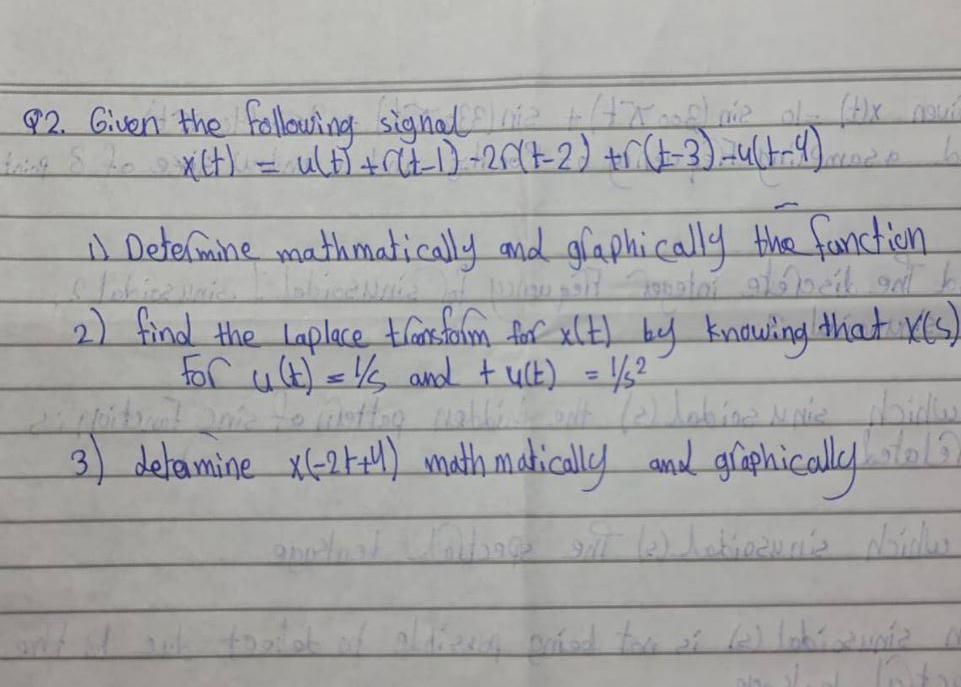 Q2. Given the following signal
x(t) = u(t) + r(t-1) - 2r(t-2) + r(t-3) - u(t-4)
1) Determine mathmatically and graphically the function
2) find the Laplace transform for x(t) by knowing that X(s)
for u(t) = 1/s and t u(t) = 1/s²
3) detamine x(-2t+4) mathmatically and graphically